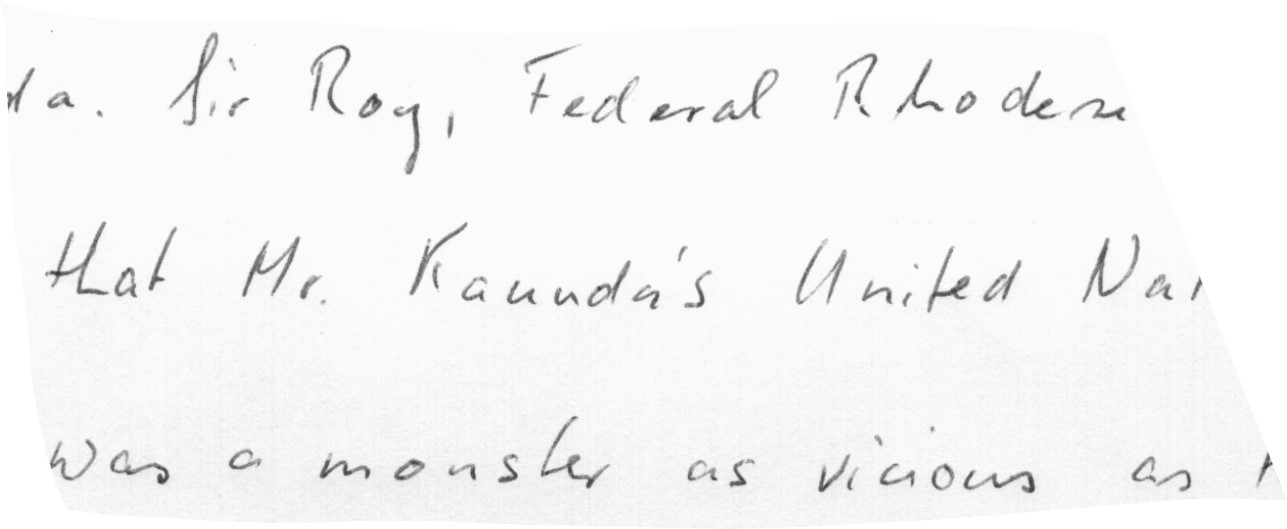 da. Sir Roy, Federal
that Mr. Kaunda's United
was a monster as vicious as